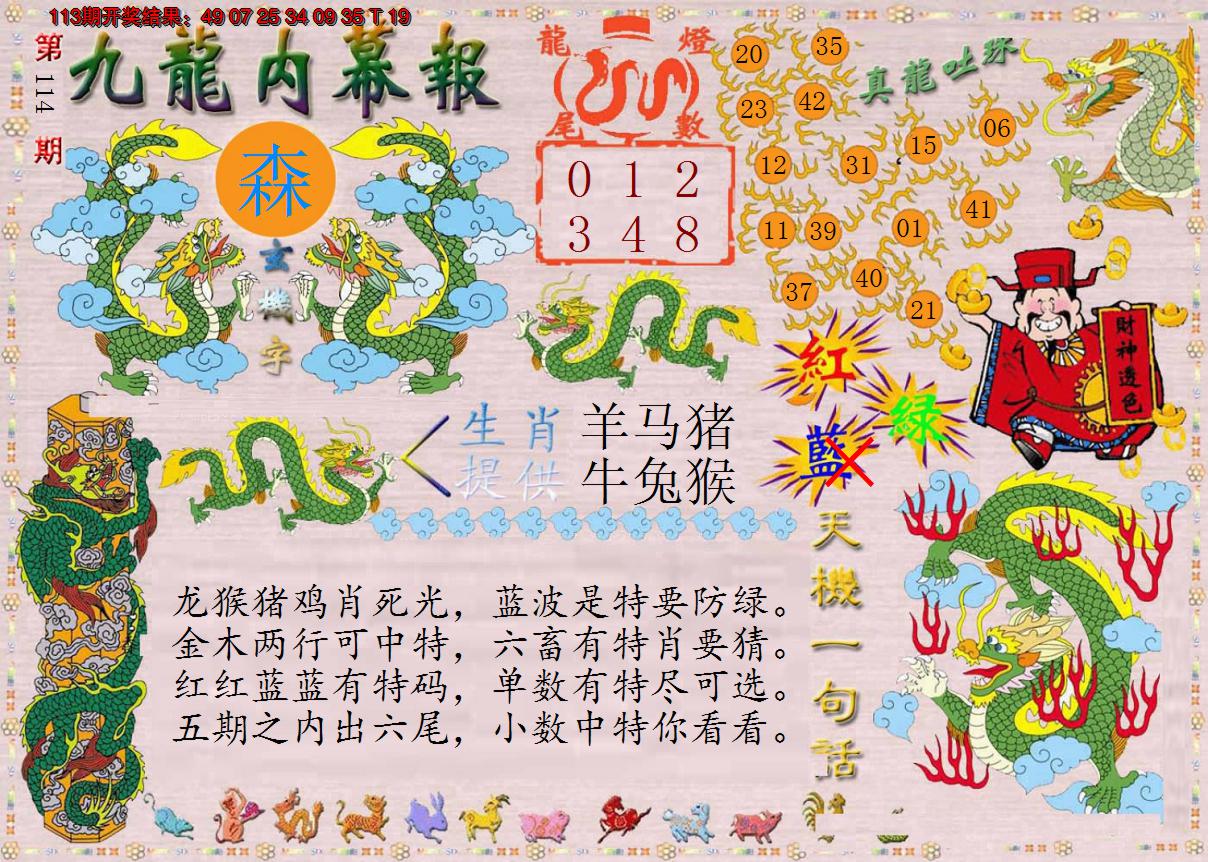 113期开奖结果：49 07 25 34 09 35 T 19
第114期
九龍内幕報
森
玄機字
龍燈
尾數
0 1 2
3 4 8
真龍吐珠
20 35
23 42
15 06
12 31
11 39 01 41
37 40 21
財神透色
紅
绿
藍
生肖 羊马猪
提供 牛兔猴
天機一句話
龙猴猪鸡肖死光，蓝波是特要防绿。
金木两行可中特，六畜有特肖要猜。
红红蓝蓝有特码，单数有特尽可选。
五期之内出六尾，小数中特你看看。